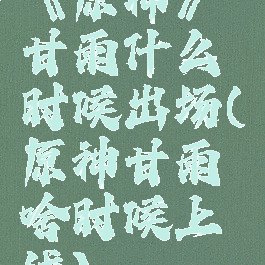 《原神》
甘雨什么
时候出场(
原神甘雨
啥时候上
线)